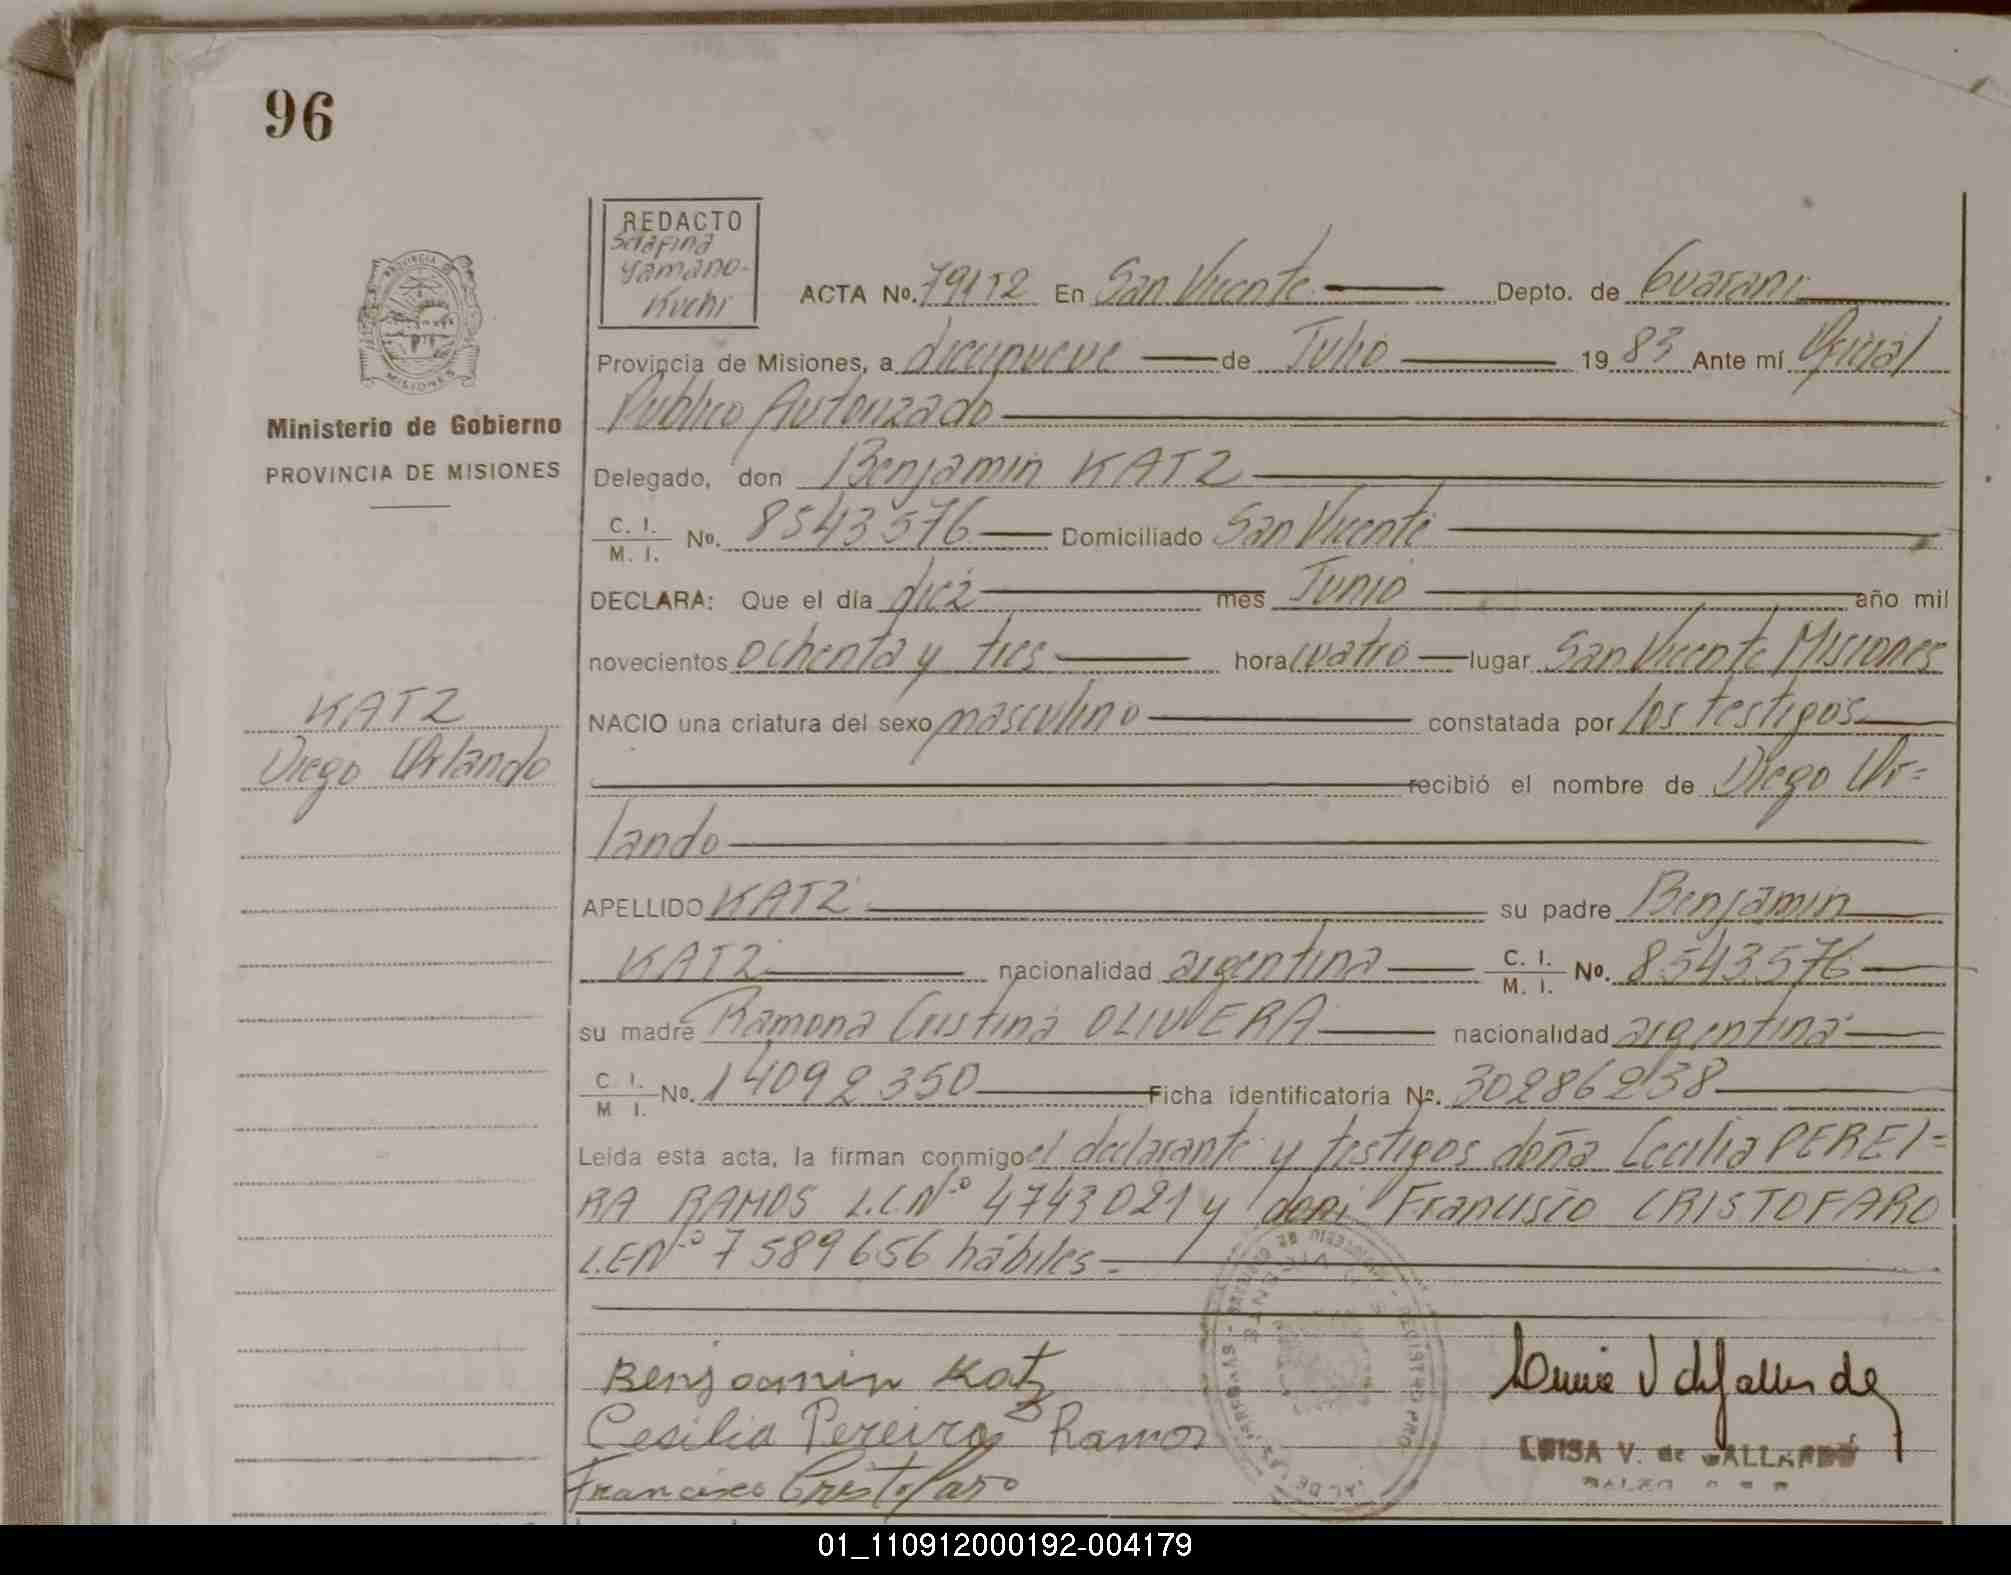 96
REDACTO
Serafina
Yamano-
Kuchi
PROVINCIA DE
MISIONES
Ministerio de Gobierno
PROVINCIA DE MISIONES
ACTA No. En San Vicente Depto. de Guarani
Provincia de Misiones, a diecinueve de Julio 19 83 Ante mí Oficial
Publico Autorizado
Delegado, don Benjamin KATZ
C. I. / M. I. No. 8543576 Domiciliado San Vicente
DECLARA: Que el día diez mes Junio año mil
novecientos ochenta y tres hora cuatro lugar San Vicente Misiones
NACIO una criatura del sexo masculino constatada por los testigos
recibió el nombre de Diego Or=
lando
KATZ
Diego Orlando
APELLIDO KATZ su padre Benjamin
KATZ nacionalidad argentina C. I. / M. I. No. 8543576
su madre Ramona Cristina OLIVERA nacionalidad argentina
C I. / M I. No. 14092350 Ficha identificatoria No. 302862138
Leida esta acta, la firman conmigo el declarante y testigos doña Cecilia PEREI=
RA RAMOS L.C.Nº 4743021 y don Francisco CRISTOFARO
L.E.Nº 7589656 hábiles-
Benjamin Katz
Cesilia Pereira Ramos
Francisco Cristofaro
LUISA V. de GALLARDO
01_110912000192-004179